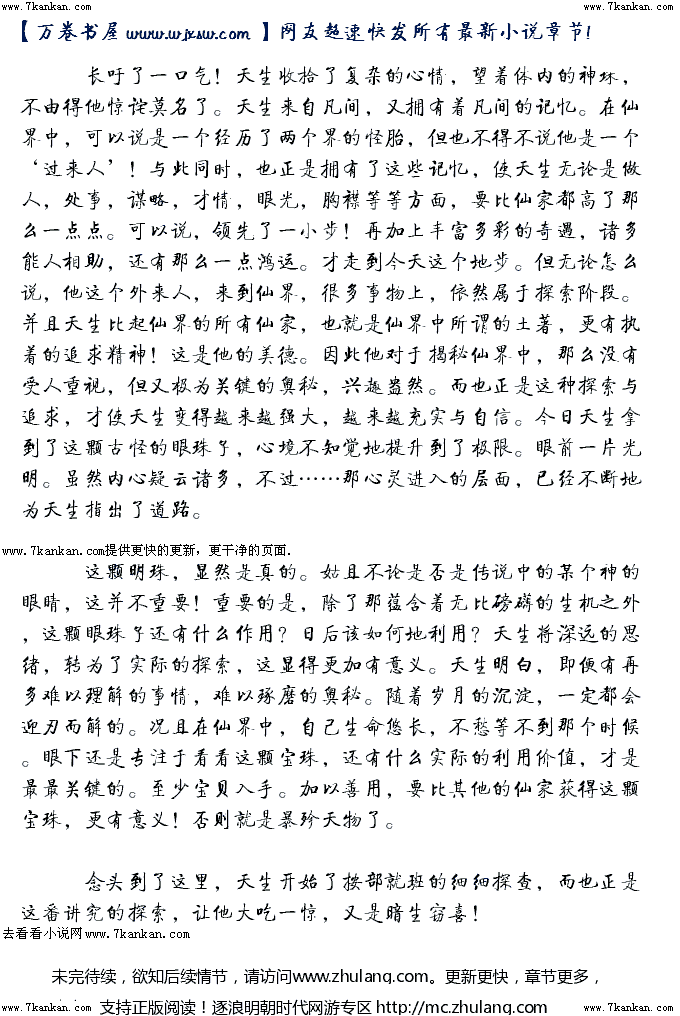 www.7kankan.com www.7kankan.com
【万卷书屋 www.wjxsw.com 】网友超速快发所有最新小说章节!
长吁了一口气！天生收拾了复杂的心情，望着体内的神珠，
不由得他惊诧莫名了。天生来自凡间，又拥有着凡间的记忆。在仙
界中，可以说是一个经历了两个界的怪胎，但也不得不说他是一个
‘过来人’！与此同时，也正是拥有了这些记忆，使天生无论是做
人，处事，谋略，才情，眼光，胸襟等等方面，要比仙家都高了那
么一点点。可以说，领先了一小步！再加上丰富多彩的奇遇，诸多
能人相助，还有那么一点鸿运。才走到今天这个地步。但无论怎么
说，他这个外来人，来到仙界，很多事物上，依然属于探索阶段。
并且天生比起仙界的所有仙家，也就是仙界中所谓的土著，更有执
着的追求精神！这是他的美德。因此他对于揭秘仙界中，那么没有
受人重视，但又极为关键的奥秘，兴趣盎然。而也正是这种探索与
追求，才使天生变得越来越强大，越来越充实与自信。今日天生拿
到了这颗古怪的眼珠子，心境不知觉地提升到了极限。眼前一片光
明。虽然内心疑云诸多，不过……那心灵进入的层面，已经不断地
为天生指出了道路。
www.7kankan.com提供更快的更新，更干净的页面.
这颗明珠，显然是真的。姑且不论是否是传说中的某个神的
眼睛，这并不重要！重要的是，除了那蕴含着无比磅礴的生机之外
，这颗眼珠子还有什么作用？日后该如何地利用？天生将深远的思
绪，转为了实际的探索，这显得更加有意义。天生明白，即便有再
多难以理解的事情，难以琢磨的奥秘。随着岁月的沉淀，一定都会
迎刃而解的。况且在仙界中，自己生命悠长，不愁等不到那个时候
。眼下还是专注于看看这颗宝珠，还有什么实际的利用价值，才是
最最关键的。至少宝贝入手。加以善用，要比其他的仙家获得这颗
宝珠，更有意义！否则就是暴殄天物了。
念头到了这里，天生开始了按部就班的细细探查，而也正是
这番讲究的探索，让他大吃一惊，又是暗生窃喜！
去看看小说网www.7kankan.com
未完待续，欲知后续情节，请访问www.zhulang.com。更新更快，章节更多，
支持正版阅读！逐浪明朝时代网游专区 http://mc.zhulang.com
www.7kankan.com www.7kankan.com